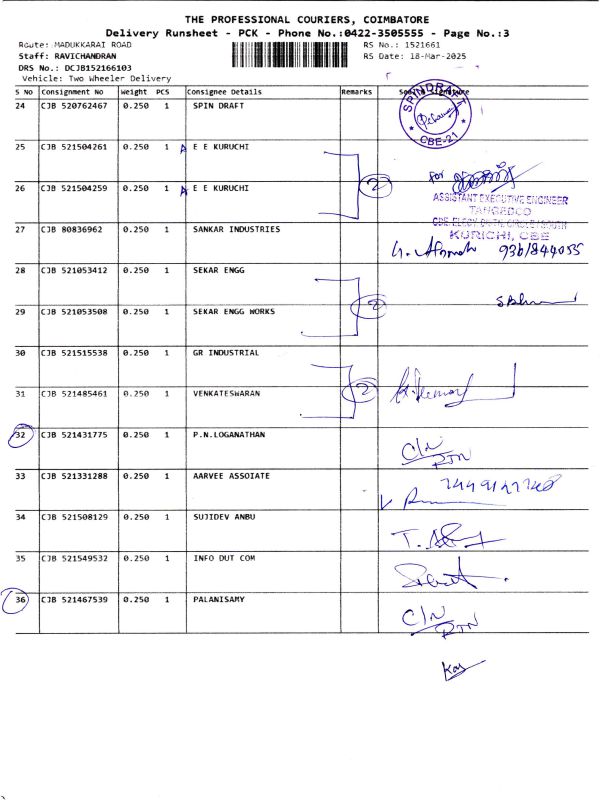 THE PROFESSIONAL COURIERS, COIMBATORE
Delivery Runsheet - PCK - Phone No.:0422-3505555 - Page No.:3
Route: MADUKKARAI ROAD
RS No.: 1521661
Staff: RAVICHANDRAN
RS Date: 18-Mar-2025
DRS No.: DCJB152166103
Vehicle: Two Wheeler Delivery
S NO Consignment No Weight PCS Consignee Details Remarks Signature
24 CJB 520762467 0.250 1 SPIN DRAFT
SPINDRAFT
CBE-21
25 CJB 521504261 0.250 1 E E KURUCHI
26 CJB 521504259 0.250 1 E E KURUCHI
2
For
ASSISTANT EXECUTIVE ENGINEER
TANGEDCO
KURICHI, CBE
27 CJB 80836962 0.250 1 SANKAR INDUSTRIES
9361844055
28 CJB 521053412 0.250 1 SEKAR ENGG
29 CJB 521053508 0.250 1 SEKAR ENGG WORKS
2
30 CJB 521515538 0.250 1 GR INDUSTRIAL
31 CJB 521485461 0.250 1 VENKATESWARAN
2
32 CJB 521431775 0.250 1 P.N.LOGANATHAN
C/N
RTN
33 CJB 521331288 0.250 1 AARVEE ASSOIATE
34 CJB 521508129 0.250 1 SUJIDEV ANBU
35 CJB 521549532 0.250 1 INFO DUT COM
36 CJB 521467539 0.250 1 PALANISAMY
C/N
RTN